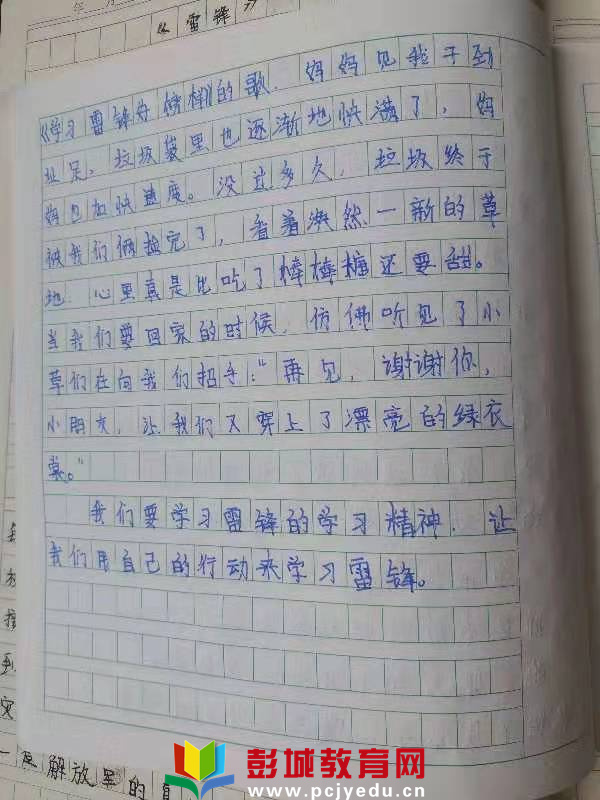 《雷锋
《学习雷锋好榜样》的歌.妈妈见我干劲
十足,垃圾袋里也逐渐地快满了,妈
妈也加快速度。没过多久,垃圾终于
被我们俩捡完了,看着焕然一新的草
地.心里真是比吃了棒棒糖还要甜。
当我们要回家的时候.仿佛听见了小
草们在向我们招手:“再见,谢谢你,
小朋友,让我们又穿上了漂亮的绿衣
裳。”
我们要学习雷锋的学习精神.让
我们用自己的行动来学习雷锋。
到
灾
一至解放军的
彭城教育网
www.pcjyedu.cn